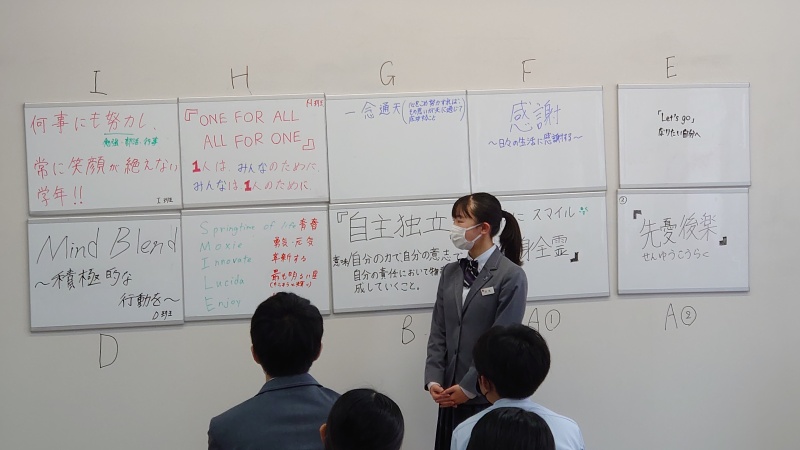 I
H
G
F
E
何事にも努力し、
勉強・部活・行事
常に笑顔が絶えない
学年!!
I 班
H班
『ONE FOR ALL
ALL FOR ONE』
1人は、みんなのために、
みんなは1人のために、
一念通天
感謝
〜日々の生活に感謝する〜
「Let's go」
なりたい自分へ
Mind Blend
〜積極的な
行動を〜
D班
Springtime of life 青春
Moxie 勇気・元気
Innovate 革新する
Lucida 最も明るい星
Enjoy
『自主独立
意味/自分の力で自分の意志で
自分の責任において物事
成していくこと。
に スマイル
身全霊』
②
『先憂後楽』
せんゆうこうらく
D
B
A①
A②